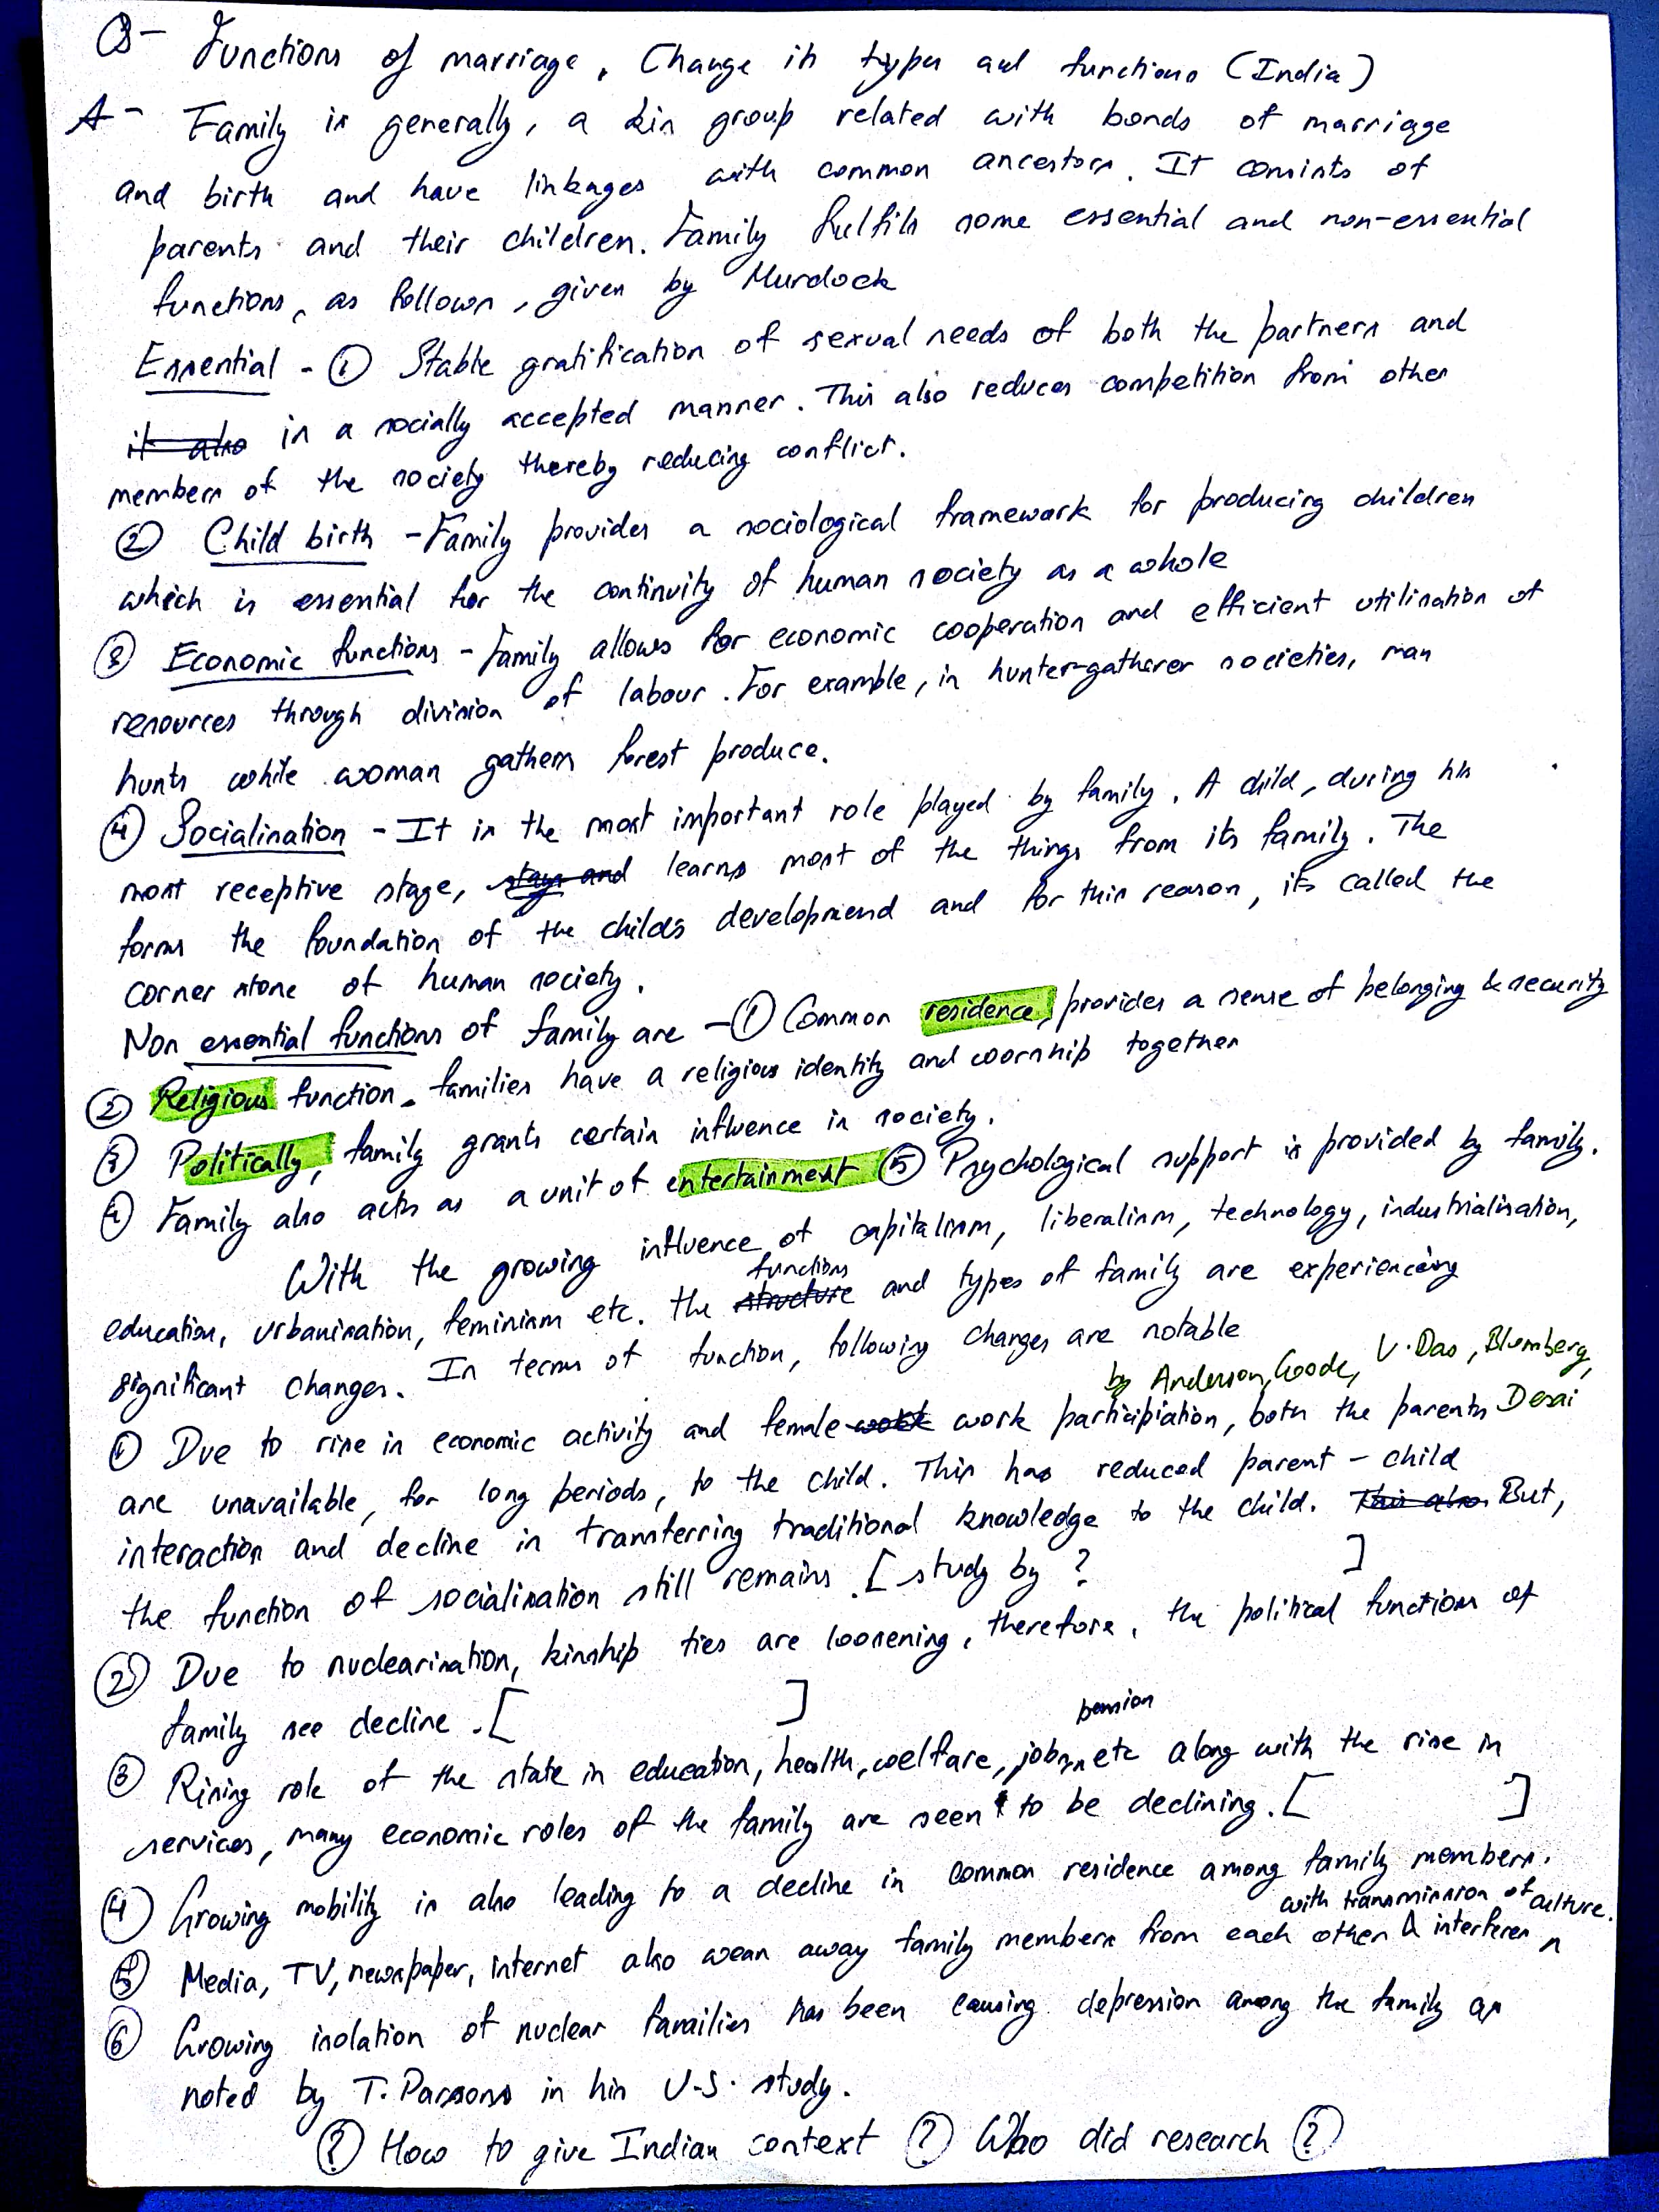 Q- Functions of marriage, Change in types and functions (India)
A- Family is generally, a kin group related with bonds of marriage
and birth and have linkages with common ancestors. It consists of
parents and their children. Family fulfils some essential and non-essential
functions, as follows, given by Murdock
Essential - ① Stable gratification of sexual needs of both the partners and
it also in a socially accepted manner. This also reduces competition from other
members of the society thereby reducing conflict.
② Child birth - Family provides a sociological framework for producing children
which is essential for the continuity of human society as a whole
③ Economic functions - Family allows for economic cooperation and efficient utilisation of
resources through division of labour. For examble, in hunter-gatherer societies, man
hunts while woman gathers forest produce.
④ Socialisation - It is the most important role played by family. A child, during his
most receptive stage, stays and learns most of the things from its family. The
forms the foundation of the childs development and for this reason, its called the
corner stone of human society.
Non essential functions of family are - ① Common residence, provides a sense of belonging & security
② Religious function - families have a religious identity and woorship together
③ Politically, family grants certain influence in society.
④ Family also acts as a unit of entertainment ⑤ Psychological support is provided by family.
With the growing influence of capitalism, liberalism, technology, industrialisation,
functions
education, urbanisation, feminism etc. the structure and types of family are experiencing
significant changes. In terms of function, following changes are notable
by Anderson, Goode, V. Das, Blumberg,
Desai
① Due to rise in economic activity and female work work participiation, both the parents
are unavailable, for long periods, to the child. This has reduced parent - child
interaction and decline in transferring traditional knowledge to the child. This also But,
the function of socialisation still remains. [study by ? ]
② Due to nuclearisation, kinship ties are loosening, therefore, the political functions of
family see decline. [ ]
pension
③ Rising role of the state in education, health, welfare, jobs, etc along with the rise in
services, many economic roles of the family are seen to be declining. [ ]
④ Growing mobility is also leading to a decline in common residence among family members.
with transmission of culture.
⑤ Media, TV, newspaper, internet also wean away family members from each other & interferes
⑥ Growing isolation of nuclear families has been causing depression among the family as
noted by T. Parsons in his U.S. study.
? How to give Indian context ? Who did research ?